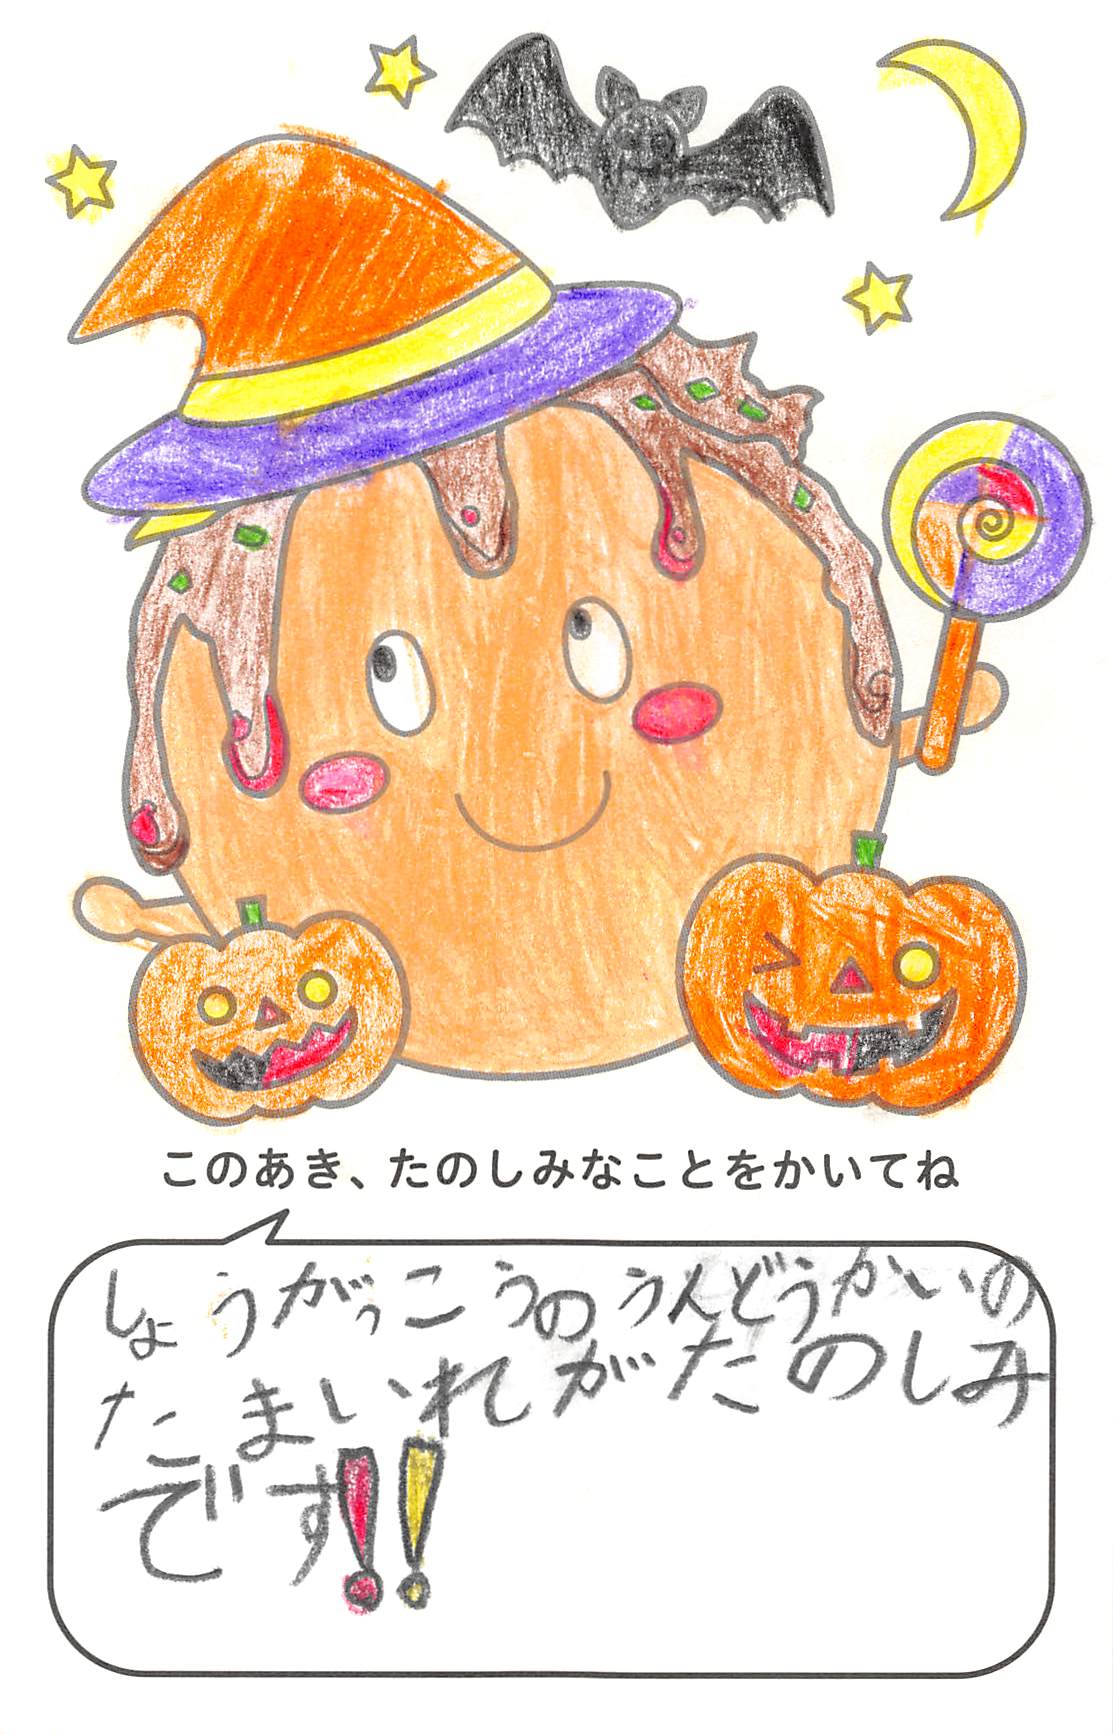 このあき、たのしみなことをかいてね
しょうがっこうのうんどうかいの
たまいれがたのしみ
です!!